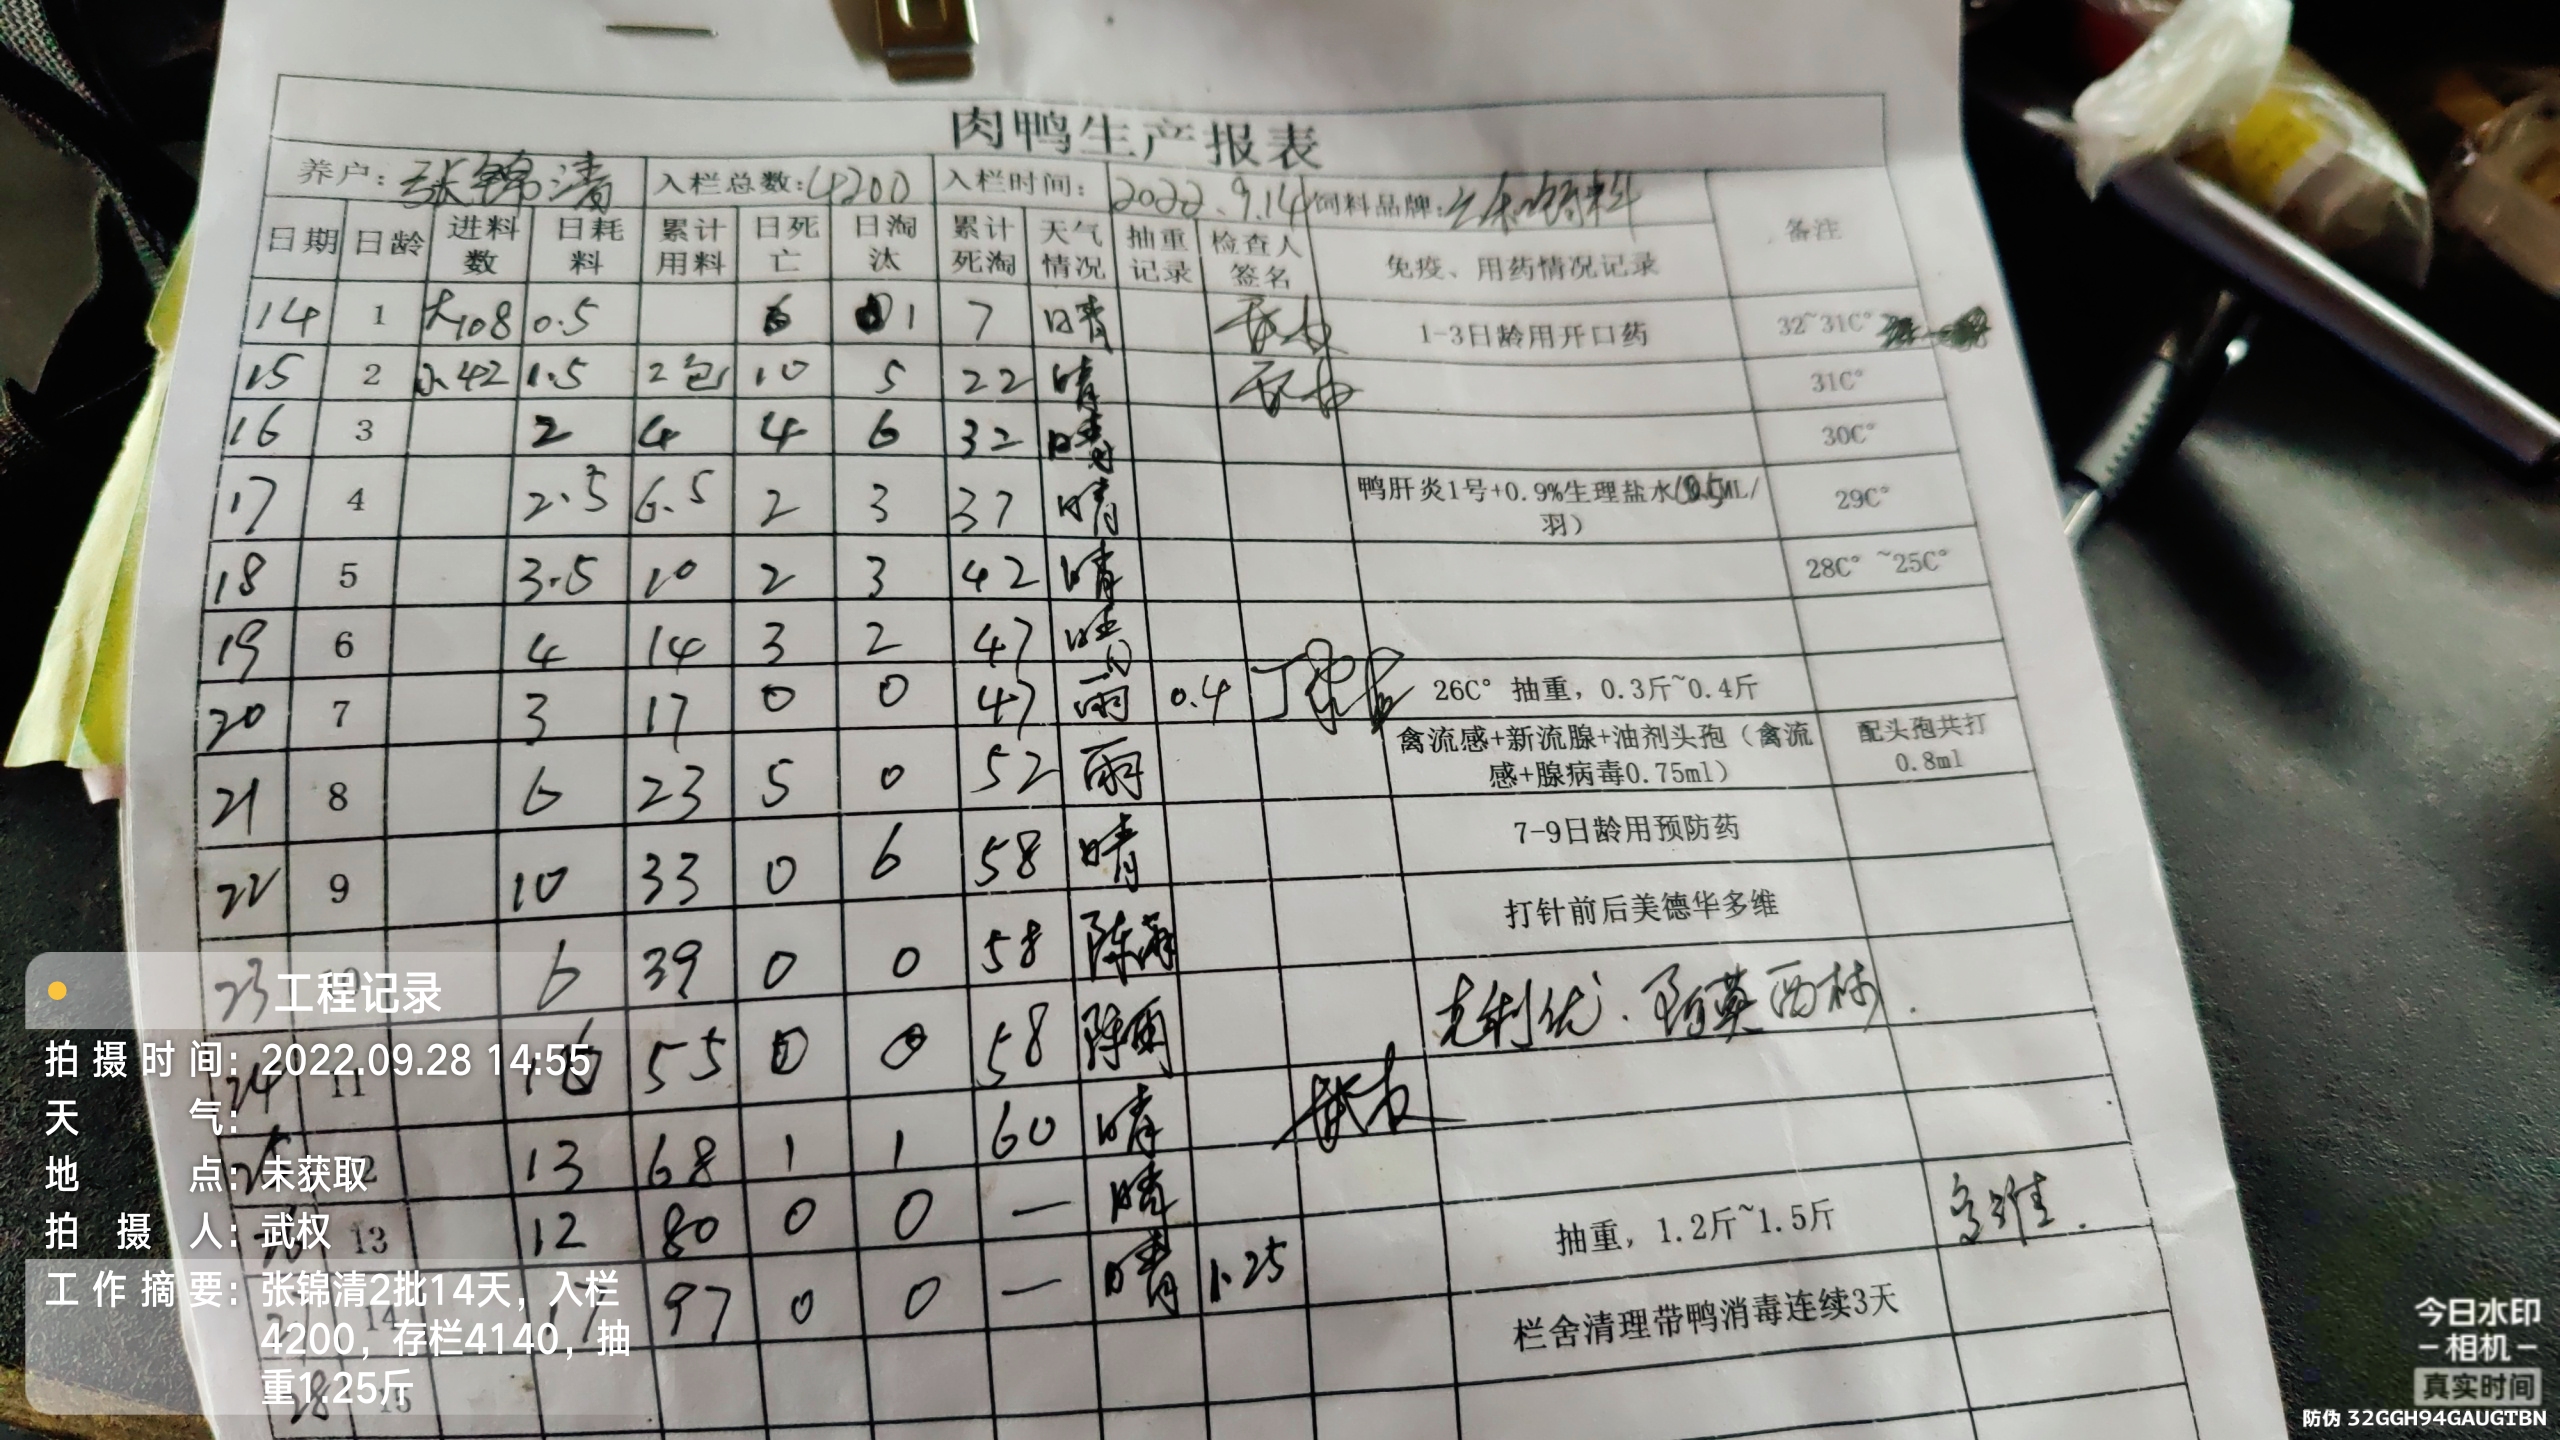 肉鸭生产报表
养户：张锦清 入栏总数：4200 入栏时间：2022.9.14 饲料品牌：
日期 日龄 进料数 日耗料 累计用料 日死亡 日淘汰 累计死淘 天气情况 抽重记录 检查人签名 免疫、用药情况记录 备注
14 1 大108 0.5 6 1 7 晴 1-3日龄用开口药 32~31C°
15 2 小42 1.5 2包 10 5 22 晴 31C°
16 3 2 4 4 6 32 晴 30C°
17 4 2.5 6.5 2 3 37 晴 鸭肝炎1号+0.9%生理盐水(0.5ML/羽） 29C°
18 5 3.5 10 2 3 42 晴 28C° ~25C°
19 6 4 14 3 2 47 晴
20 7 3 17 0 0 47 雨 0.4 26C° 抽重，0.3斤~0.4斤
21 8 6 23 5 0 52 雨 禽流感+新流腺+油剂头孢（禽流感+腺病毒0.75ml） 配头孢共打0.8ml
22 9 10 33 0 6 58 晴 7-9日龄用预防药
打针前后美德华多维
23 10 6 39 0 0 58 陈雨 克制优.阿莫西林.
24 11 16 55 0 0 58 阵雨
25 12 13 68 1 1 60 晴
26 13 12 80 0 0 — 晴 抽重，1.2斤~1.5斤 多维.
14 17 97 0 0 — 晴 1.25 栏舍清理带鸭消毒连续3天
28 15
工程记录
拍摄时间：2022.09.28 14:55
天气：
地点：未获取
拍摄人：武权
工作摘要：张锦清2批14天，入栏
4200，存栏4140，抽
重1.25斤
今日水印
-相机-
真实时间
防伪 32GGH94GAUGTBN